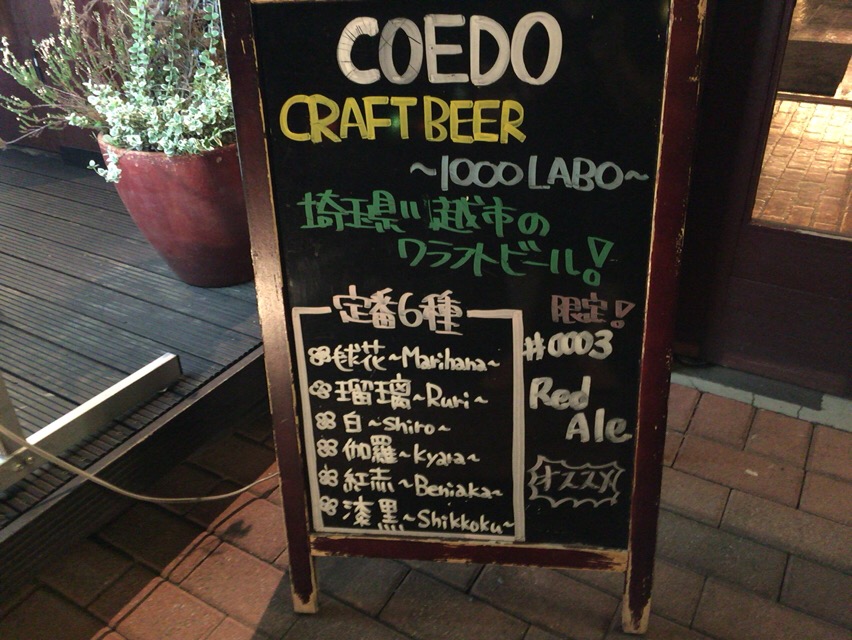 COEDO
CRAFT BEER
~1000 LABO~
埼玉県川越市の
クラフトビール!
定番6種
毬花~Marihana~
瑠璃~Ruri~
白~shiro~
伽羅~kyara~
紅赤~Beniaka~
漆黒~Shikkoku~
限定!
#0003
Red
Ale
オススメ